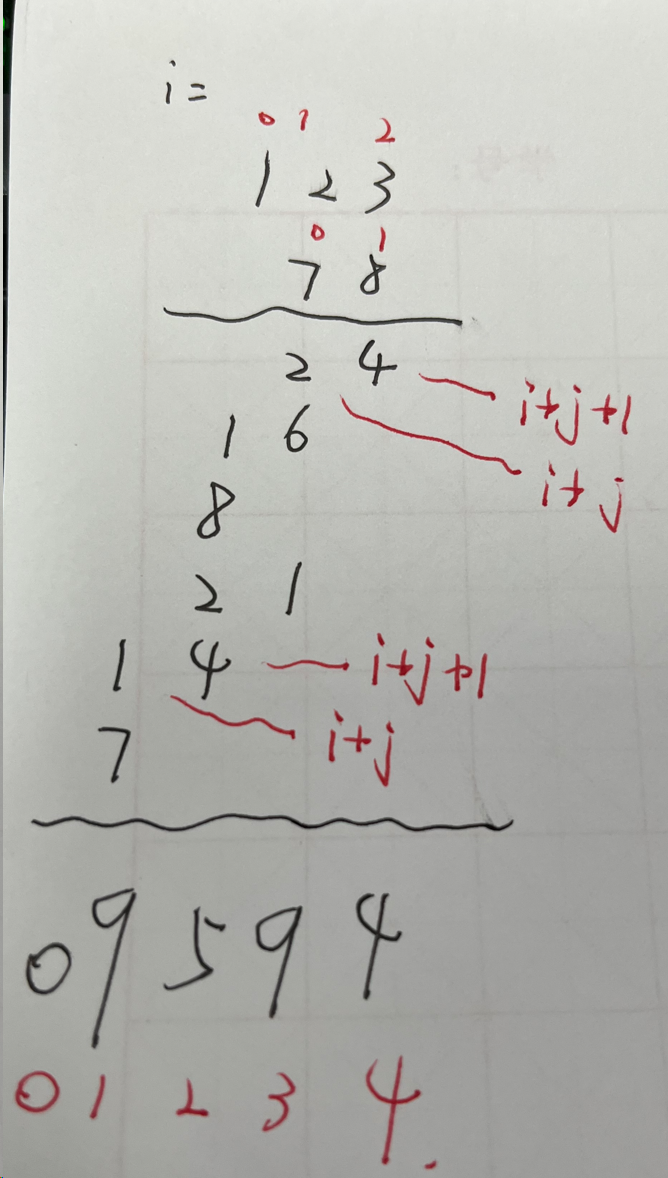 i=
0 1 2
1 2 3
0 1
7 8
2 4 i+j+1
1 6
i+j
8
2 1
1 4 i+j+1
7 i+j
0 9 5 9 4
0 1 2 3 4.